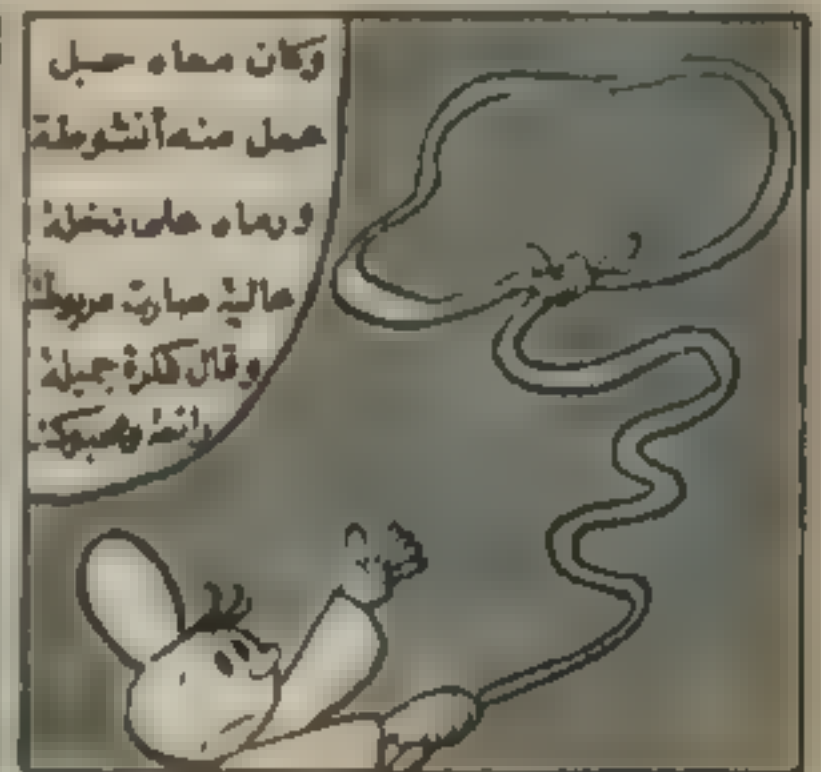 وكان معاه حبل
عمل منه أنشوطة
ورماه على نخلة
عالية صارت مربوطة
وقال فكرة جميلة
رائعة ومحبوكة